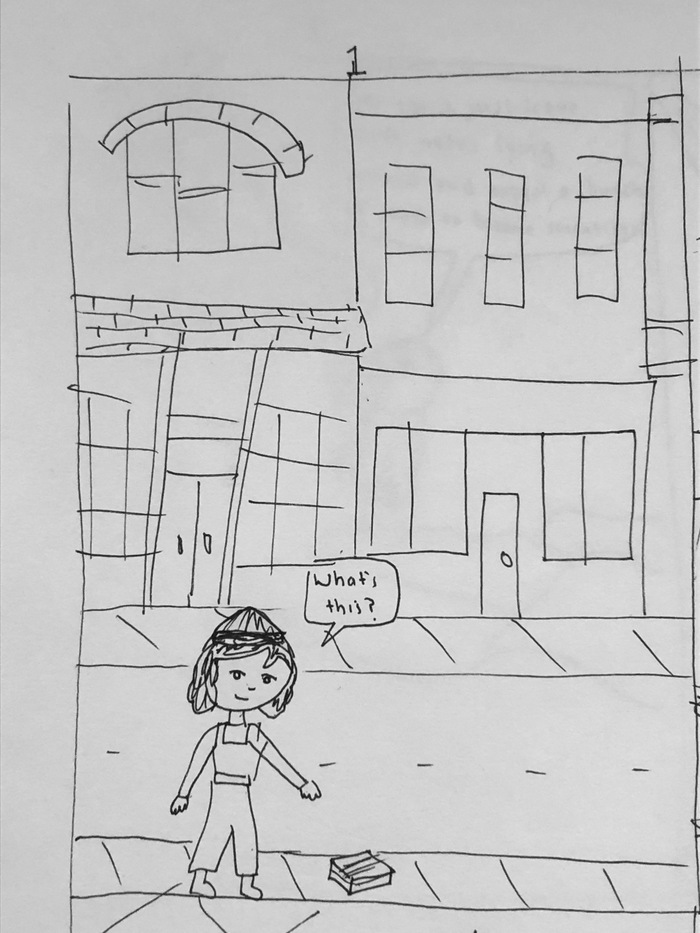 1
What's
this?